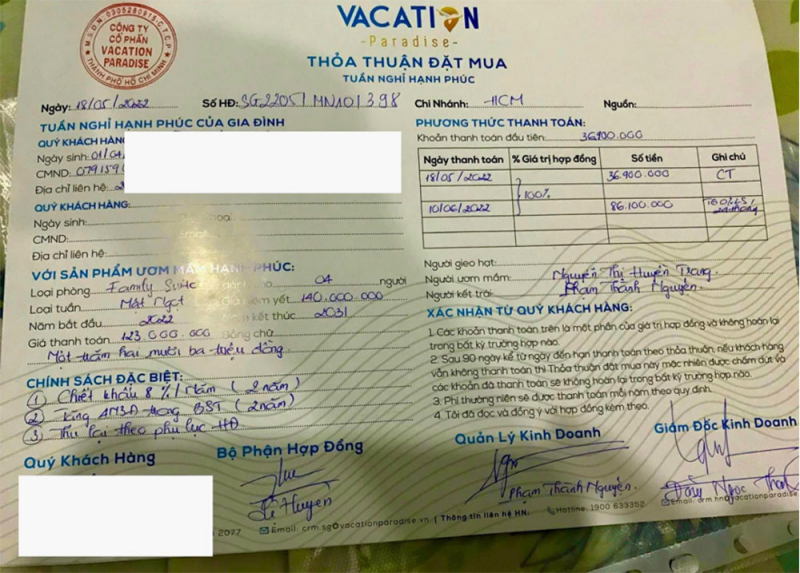 M.S.D.N: 0305280915-C.T.C.P
CÔNG TY
CỔ PHẦN
VACATION
PARADISE
THÀNH PHỐ HỒ CHÍ MINH
VACATION
-Paradise-
THỎA THUẬN ĐẶT MUA
TUẦN NGHỈ HẠNH PHÚC
Ngày: 18/05/2022 Số HĐ: SG2205/MN101398 Chi Nhánh: HCM Nguồn:
TUẦN NGHỈ HẠNH PHÚC CỦA GIA ĐÌNH
QUÝ KHÁCH HÀNG
Ngày sinh: 01/04
CMND: 079159
Địa chỉ liên hệ: 2
QUÝ KHÁCH HÀNG:
Ngày sinh:
CMND:
Địa chỉ liên hệ:
VỚI SẢN PHẨM ƯƠM MẦM HẠNH PHÚC:
Loại phòng: Family Suite 04 người
Loại tuần: Mật Ngọt Giá niêm yết 140.000.000
Năm bắt đầu: 2022 kết thúc: 2031
Giá thanh toán: 123.000.000 Bằng chữ:
Một trăm hai mươi ba triệu đồng
CHÍNH SÁCH ĐẶC BIỆT:
① Chiết khấu 8%/năm (2 năm)
② Tặng 4N3Đ trong BST (2 năm)
③ Thu lại theo phụ lục HĐ
PHƯƠNG THỨC THANH TOÁN:
Khoản thanh toán đầu tiên: 36.900.000
Ngày thanh toán % Giá trị hợp đồng Số tiền Ghi chú
18/05/2022 36.900.000 CT
100%
10/06/2022 86.100.000
Người gieo hạt:
Người ươm mầm: Nguyễn Thị Huyền Trang
Người kết trái: Phạm Thành Nguyên
XÁC NHẬN TỪ QUÝ KHÁCH HÀNG:
1. Các khoản thanh toán trên là một phần của giá trị hợp đồng và không hoàn lại
trong bất kỳ trường hợp nào.
2. Sau 90 ngày kể từ ngày đến hạn thanh toán theo thỏa thuận, nếu khách hàng
vẫn không thanh toán thì Thỏa thuận đặt mua này mặc nhiên được chấm dứt và
các khoản đã thanh toán sẽ không hoàn lại trong bất kỳ trường hợp nào.
3. Phí thường niên sẽ được thanh toán mỗi năm theo quy định.
4. Tôi đã đọc và đồng ý với hợp đồng kèm theo.
Quý Khách Hàng Bộ Phận Hợp Đồng Quản Lý Kinh Doanh Giám Đốc Kinh Doanh
Lê Huyền Phạm Thành Nguyên Ngọc
2077 Email: crm.sg@vacationparadise.vn | Thông tin liên hệ HN: Hotline: 1900 633352 Email: crm.hn@vacationparadise